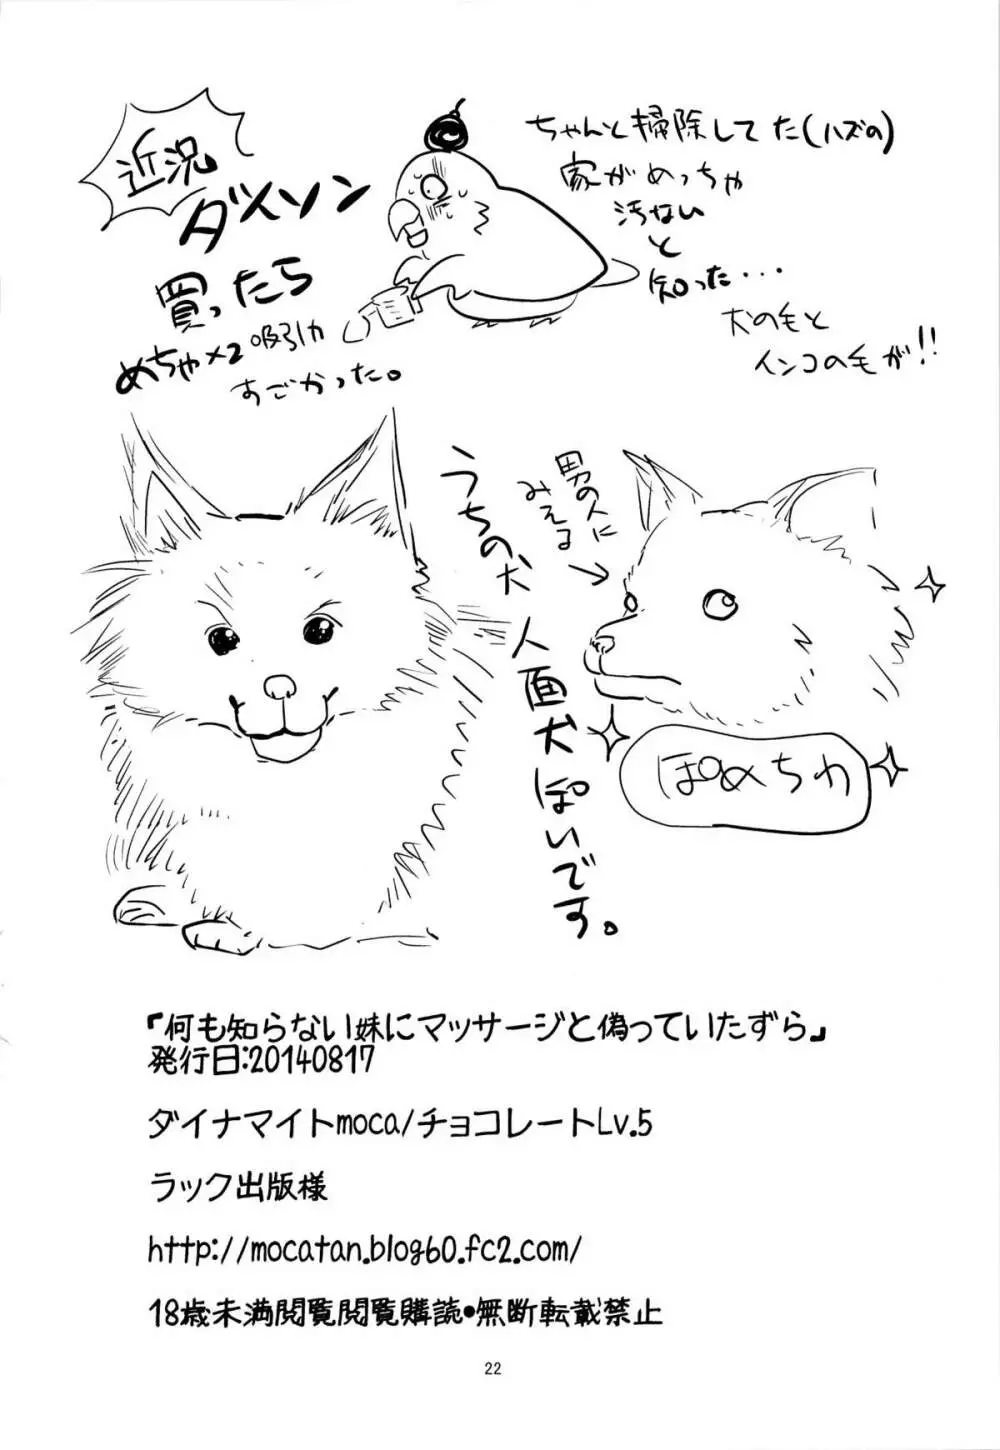 近況
ダイソン
買ったら
めちゃ×2吸引力
すごかった。
ちゃんと掃除してた(ハズの)
家がめっちゃ
汚ない
と
知った...
犬の毛と
インコの毛が!!
うちの犬
人面犬ぽいです。
男の人に
みえる
ぽめちわ
『何も知らない妹にマッサージと偽っていたずら』
発行日:20140817
ダイナマイトmoca/チョコレートLv.5
ラック出版様
http://mocatan.blog60.fc2.com/
18歳未満閲覧閲覧購読•無断転載禁止
22